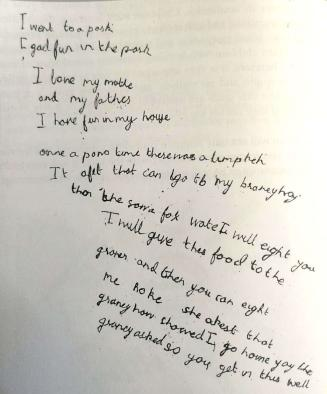 I went to a park
I gad fun in the park
I lone my mothe
and my father
I hane fun in my house
onne a pono time there was a lumpheh
It afet that can I go to my
then the sorra for wate I will eight you
I will give this food to the
graner and then you can eight
me noke she akest that
graney how showed I go home yay the
graney asked so you get in this well